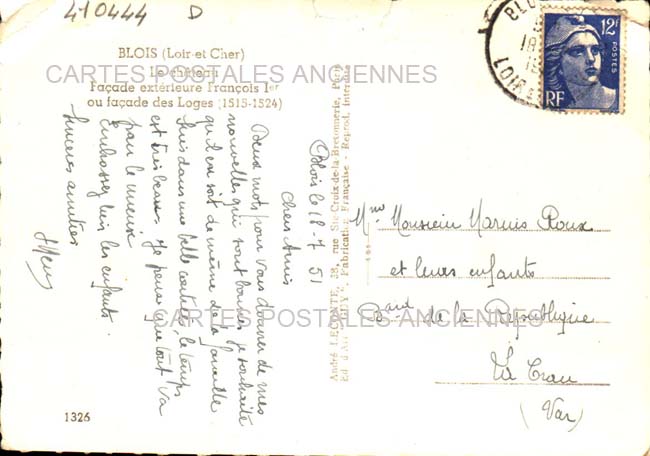 410444 D
BLOIS (Loir-et Cher)
Le château
Façade extérieure François 1er
ou façade des Loges (1515-1524)
CARTES POSTALES ANCIENNES
Blois le 18-7 51
Chers Amis
Deux mots pour vous donner de mes
nouvelles qui sont bonnes je souhaite
qu'il en soit de même de la famille
suis dans une belle contrée, le temps
est très beau. Je pense que tout va
pour le mieux
Embrassez bien les enfants.
Sincères amitiés
André LECONTE, 38, rue Ste-Croix-de-la-Bretonnerie, Paris
Ed. d'Art "GUY". Fabrication Française - Reprod. interdite
BLO
18
LOIR
12F
POSTES
RF
Mme Monsieur Marius Roux
et leurs enfants
Bard de la République
CARTES POSTALES ANCIENNES
La Crau
(Var)
1326